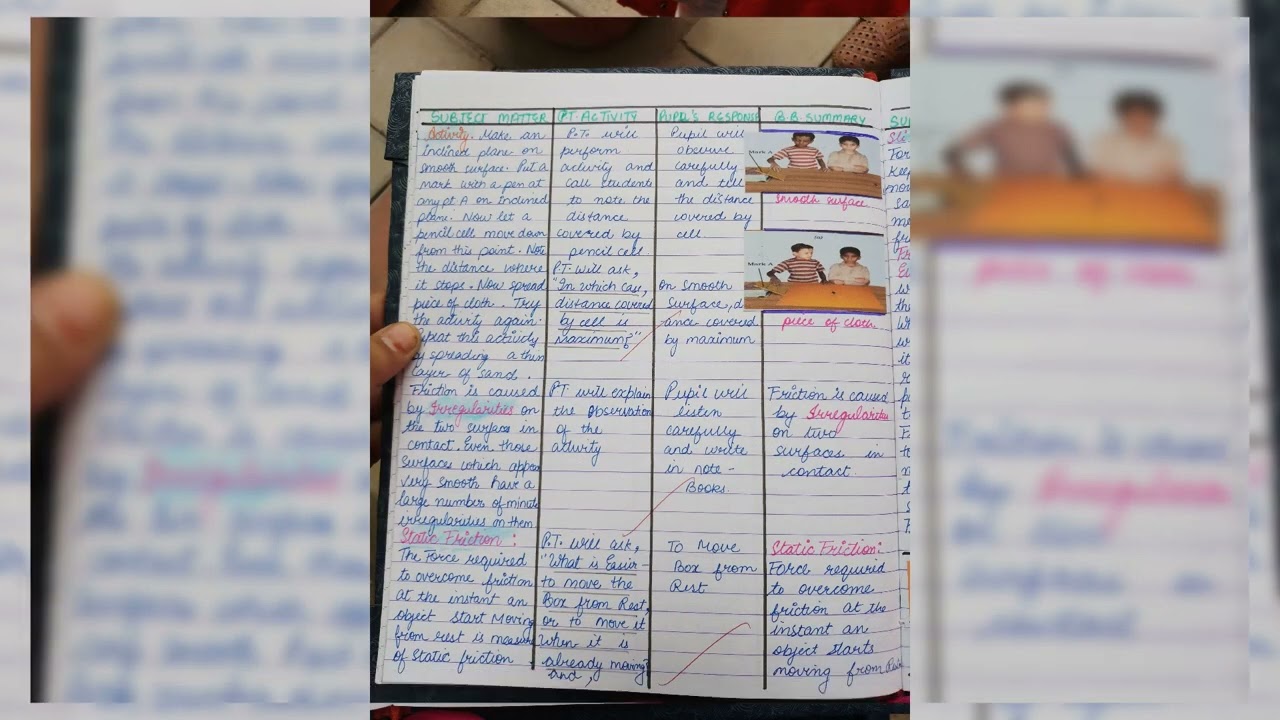 SUBJECT MATTER
Activity. Make an
inclined plane on
smooth surface. Put a
mark with a pen at
any pt A on Inclined
plane. Now let a
pencil cell move down
from this point. Note
the distance where
it stops. Now spread
piece of cloth. Try
the activity again.
Repeat this activity
by spreading a thin
layer of sand.
Friction is caused
by Irregularities on
the two surfaces in
contact. Even those
surfaces which appear
very smooth have a
large number of minute
irregularities on them
Static Friction :
The Force required
to overcome friction
at the instant an
object start Moving
from rest is measure
of static friction
P.T. ACTIVITY
P.T. will
perform
activity and
call students
to note the
distance
covered by
pencil cell.
P.T. will ask,
"In which case,
distance covered
by cell is
Maximum?"
P.T. will explain
the observation
of the
activity
P.T. will ask,
"What is Easier -
to move the
Box from Rest,
or to move it
when it is
already moving?
and,
PUPIL'S RESPONSE
Pupil will
observe
carefully
and tell
the distance
covered by
cell.
on smooth
surface, d
ance covered
by maximum
Pupil will
listen
carefully
and write
in note-
Books.
To Move
Box from
Rest
B.B. SUMMARY
Mark A
smooth surface
Mark A
piece of cloth
Friction is caused
by Irregularities
on two
surfaces in
contact.
Static Friction:
Force required
to overcome
friction at the
instant an
object starts
moving from Rest